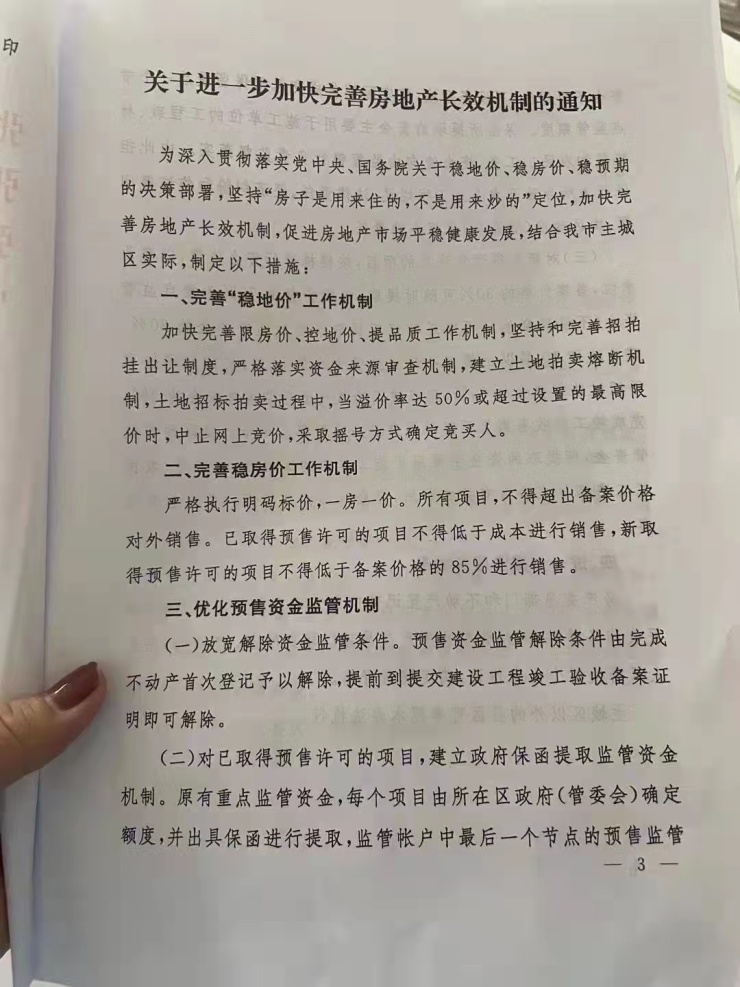 印
关于进一步加快完善房地产长效机制的通知
为深入贯彻落实党中央、国务院关于稳地价、稳房价、稳预期
的决策部署,坚持“房子是用来住的,不是用来炒的”定位,加快完
善房地产长效机制,促进房地产市场平稳健康发展,结合我市主城
区实际,制定以下措施:
一、完善“稳地价”工作机制
加快完善限房价、控地价、提品质工作机制,坚持和完善招拍
挂出让制度,严格落实资金来源审查机制,建立土地拍卖熔断机
制,土地招标拍卖过程中,当溢价率达50%或超过设置的最高限
价时,中止网上竞价,采取摇号方式确定竞买人。
二、完善稳房价工作机制
严格执行明码标价,一房一价。所有项目,不得超出备案价格
对外销售。已取得预售许可的项目不得低于成本进行销售,新取
得预售许可的项目不得低于备案价格的85%进行销售。
三、优化预售资金监管机制
(一)放宽解除资金监管条件。预售资金监管解除条件由完成
不动产首次登记予以解除,提前到提交建设工程竣工验收备案证
明即可解除。
(二)对已取得预售许可的项目,建立政府保函提取监管资金
机制。原有重点监管资金,每个项目由所在区政府(管委会)确定
额度,并出具保函进行提取,监管帐户中最后一个节点的预售监管
— 3 —